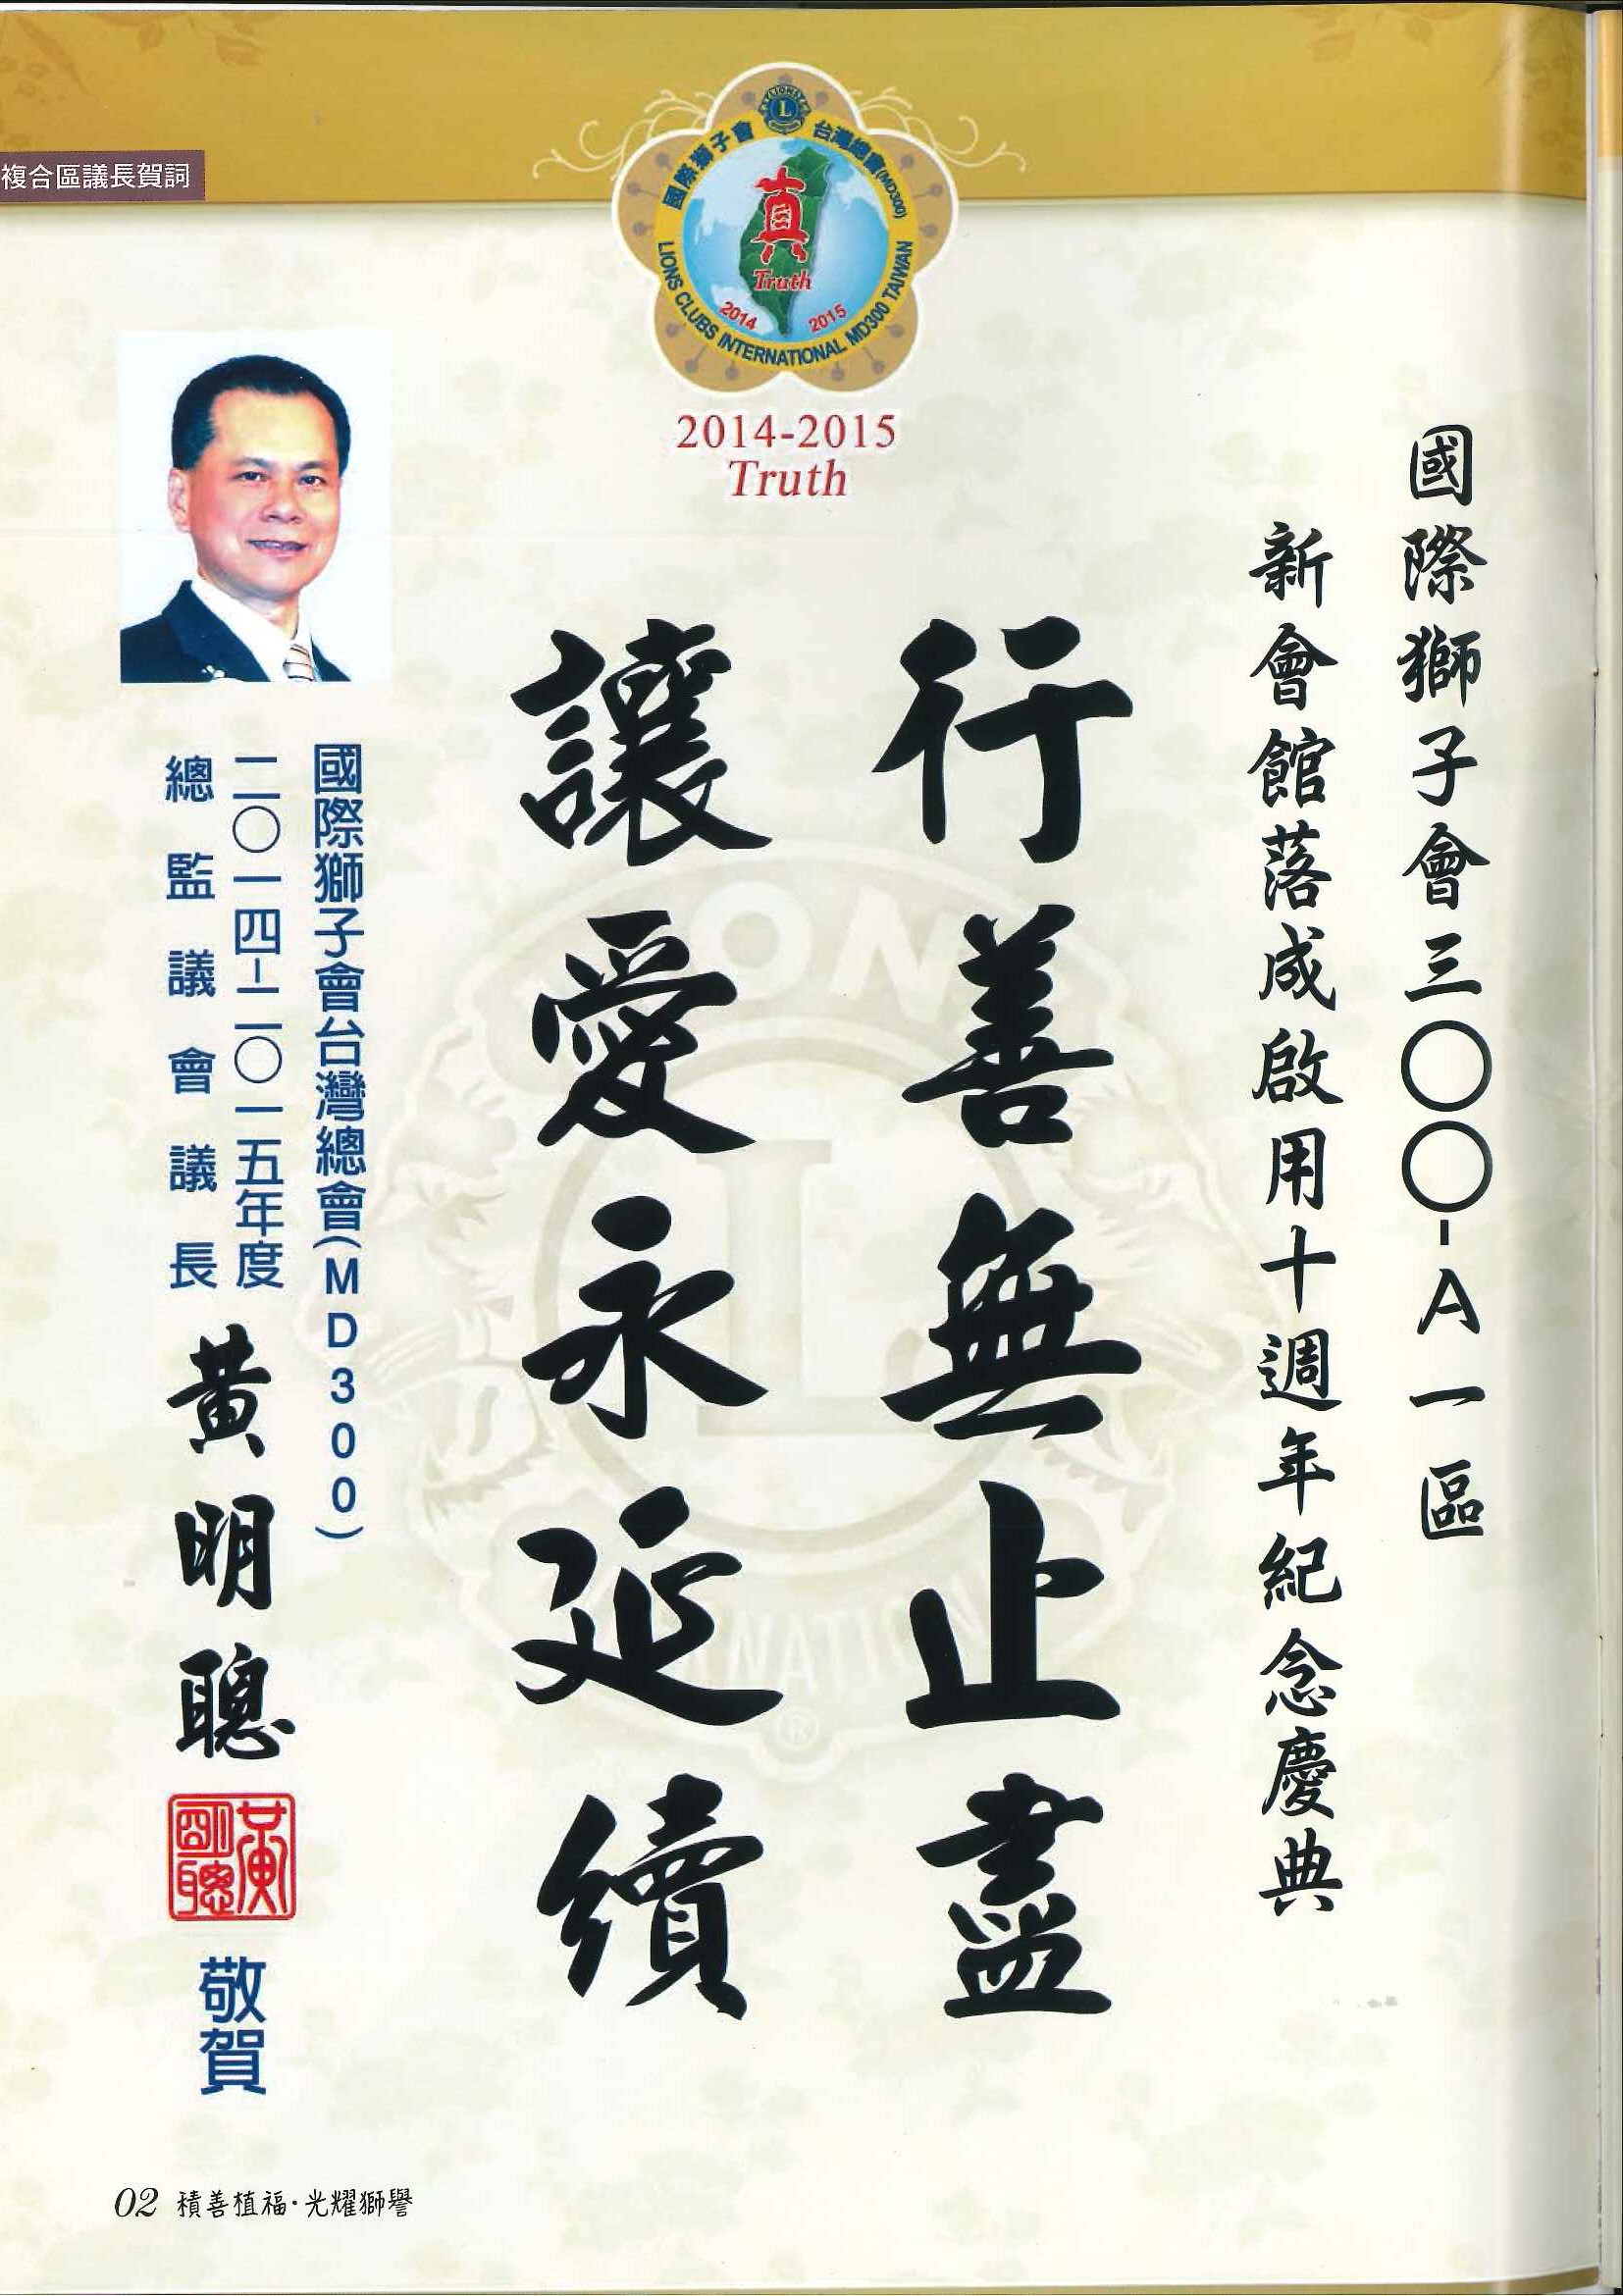 複合區議長賀詞
LIONS
L
國際獅子會 台灣總會(MD300)
真
Truth
2014 2015
LIONS CLUBS INTERNATIONAL MD300 TAIWAN
2014-2015
Truth
國際獅子會三〇〇-A一區
新會館落成啟用十週年紀念慶典
行善無止盡
讓愛永延續
國際獅子會台灣總會(MD300)
二〇一四-二〇一五年度
總監議會議長
黃明聰
黃明聰
敬賀
02 積善植福·光耀獅譽